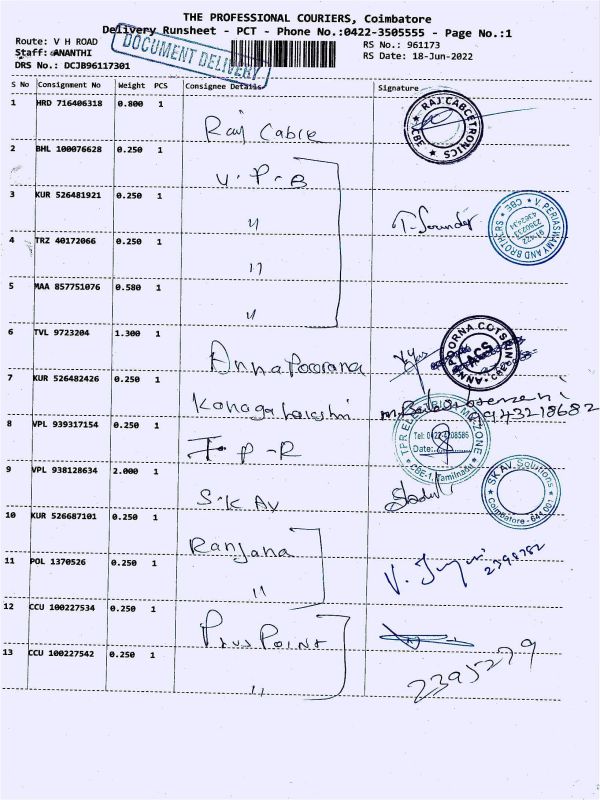 THE PROFESSIONAL COURIERS, Coimbatore
Delivery Runsheet - PCT - Phone No.:0422-3505555 - Page No.:1
Route: V H ROAD
Staff: ANANTHI
DRS No.: DCJB96117301
DOCUMENT DELIVERY
RS No.: 961173
RS Date: 18-Jun-2022
S No Consignment No Weight PCS Consignee Details Signature
1 HRD 716406318 0.800 1
Raj Cable
RAJ CABCETRONICS
CBE
2 BHL 100076628 0.250 1
V. P - B
3 KUR 526481921 0.250 1
"
T. Sounder
V. PERIASWAMY AND BROTHERS
CBE
4 TRZ 40172066 0.250 1
"
5 MAA 857751076 0.580 1
"
6 TVL 9723204 1.300 1
Annapoorana
ACS
7 KUR 526482426 0.250 1
Kanagalakshmi
943218682
8 VPL 939317154 0.250 1
P - R
Tel: 0422-4208586
Date:
CBE-1, Tamilnadu
9 VPL 938128634 2.000 1
S.K AV
SK AV. Solutions
Coimbatore - 641 001
10 KUR 526687101 0.250 1
Ranjana
11 POL 1370526 0.250 1
"
V.
2398782
12 CCU 100227534 0.250 1
Plus Point
13 CCU 100227542 0.250 1
"
2395279